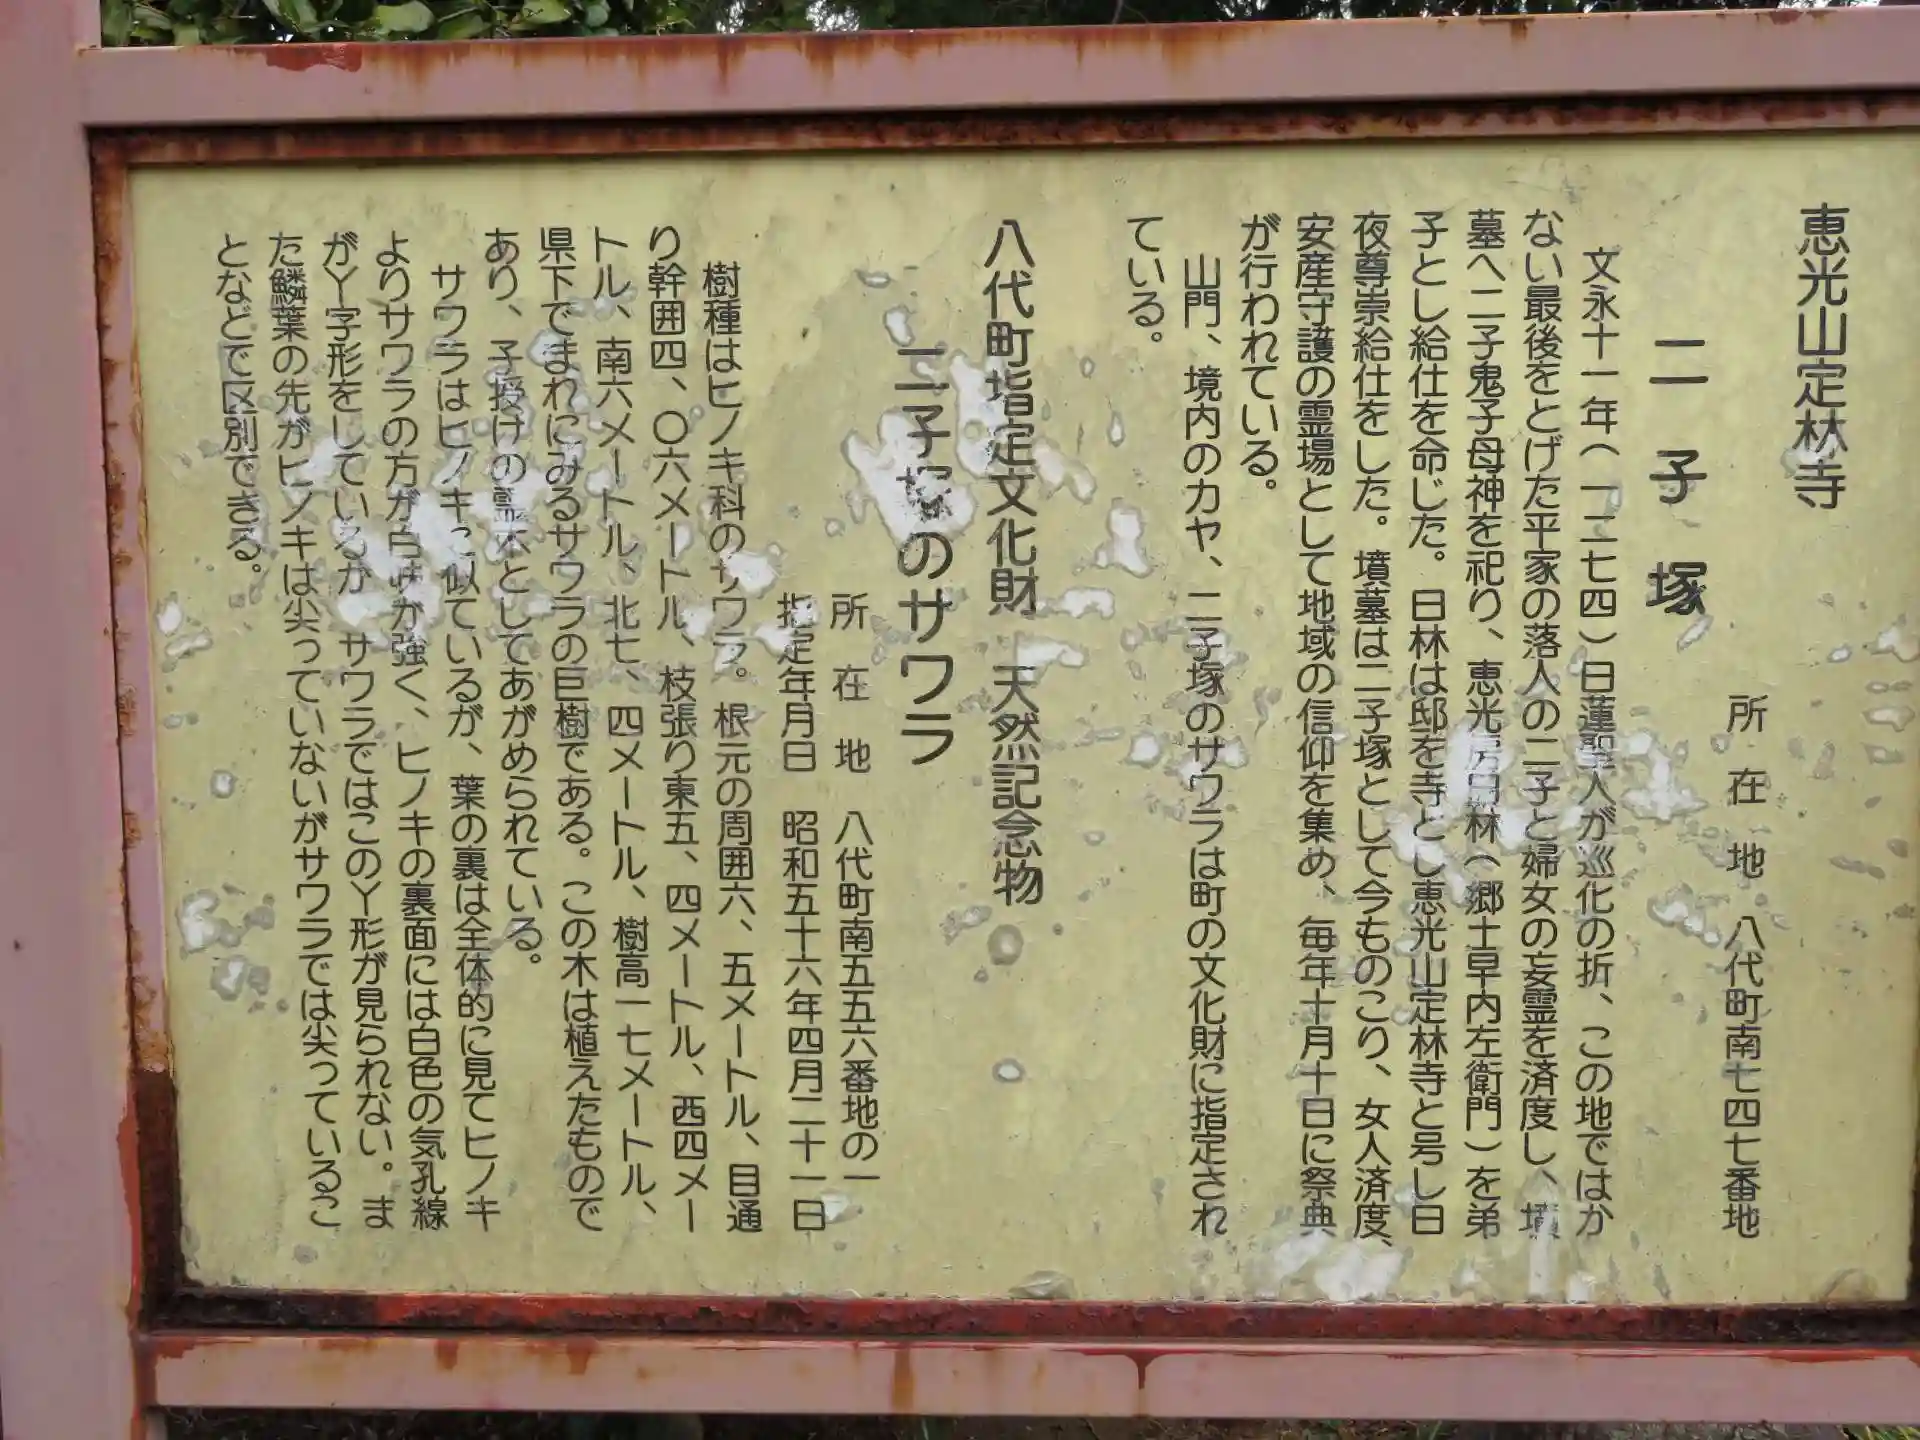 恵光山定林寺
二子塚
所在地 八代町南七四七番地
文永十一年(一二七四)日蓮聖人が巡化の折、この地ではか
ない最後をとげた平家の落人の二子と婦女の妄霊を済度し、墳
墓へ二子鬼子母神を祀り、恵光房日林(郷士早内左衛門)を弟
子とし給仕を命じた。日林は邸を寺とし恵光山定林寺と号し日
夜尊崇給仕をした。墳墓は二子塚として今ものこり、女人済度、
安産守護の霊場として地域の信仰を集め、毎年十月十日に祭典
が行われている。
山門、境内のカヤ、二子塚のサワラは町の文化財に指定され
ている。
八代町指定文化財 天然記念物
二子塚のサワラ
所在地 八代町南五五六番地の一
指定年月日 昭和五十六年四月二十一日
樹種はヒノキ科のサワラ。根元の周囲六、五メートル、目通
り幹囲四、〇六メートル、枝張り東五、四メートル、西四メー
トル、南六メートル、北七、四メートル、樹高一七メートル、
県下でまれにみるサワラの巨樹である。この木は植えたもので
あり、子授けの霊木としてあがめられている。
サワラはヒノキに似ているが、葉の裏は全体的に見てヒノキ
よりサワラの方が白味が強く、ヒノキの裏面には白色の気孔線
がY字形をしているが サワラではこのY形が見られない。ま
た鱗葉の先がヒノキは尖っていないがサワラでは尖っているこ
となどで区別できる。